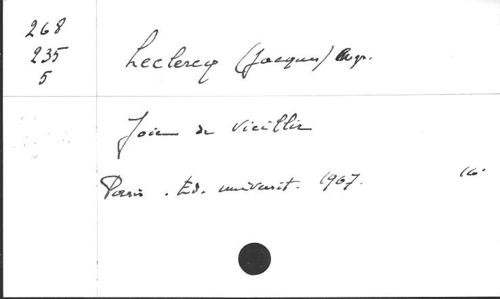 268
235
5
Leclercq (Jacques) Mgr.
Joie de vieillir
Paris. Ed. universit. 1967. 16°